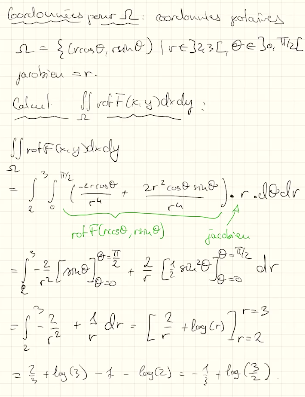 Coordonnées pour Ω : coordonnées polaires
Ω = {(rcosθ, rsinθ) | r∈]2,3[, θ∈]0, π/2[}
jacobien = r.
Calcul ∬_Ω rot F(x,y)dxdy :
∬_Ω rot F(x,y)dxdy
= ∫_2^3 ∫_0^{π/2} (-2rcosθ/r⁴ + 2r²cosθsinθ/r⁴) · r · dθdr
rot F(rcosθ, rsinθ) jacobien
= ∫_2^3 -2/r² [sinθ]_{θ=0}^{θ=π/2} + 2/r [1/2 sin²θ]_{θ=0}^{θ=π/2} dr
= ∫_2^3 -2/r² + 1/r dr = [2/r + log(r)]_{r=2}^{r=3}
= 2/3 + log(3) - 1 - log(2) = -1/3 + log(3/2).